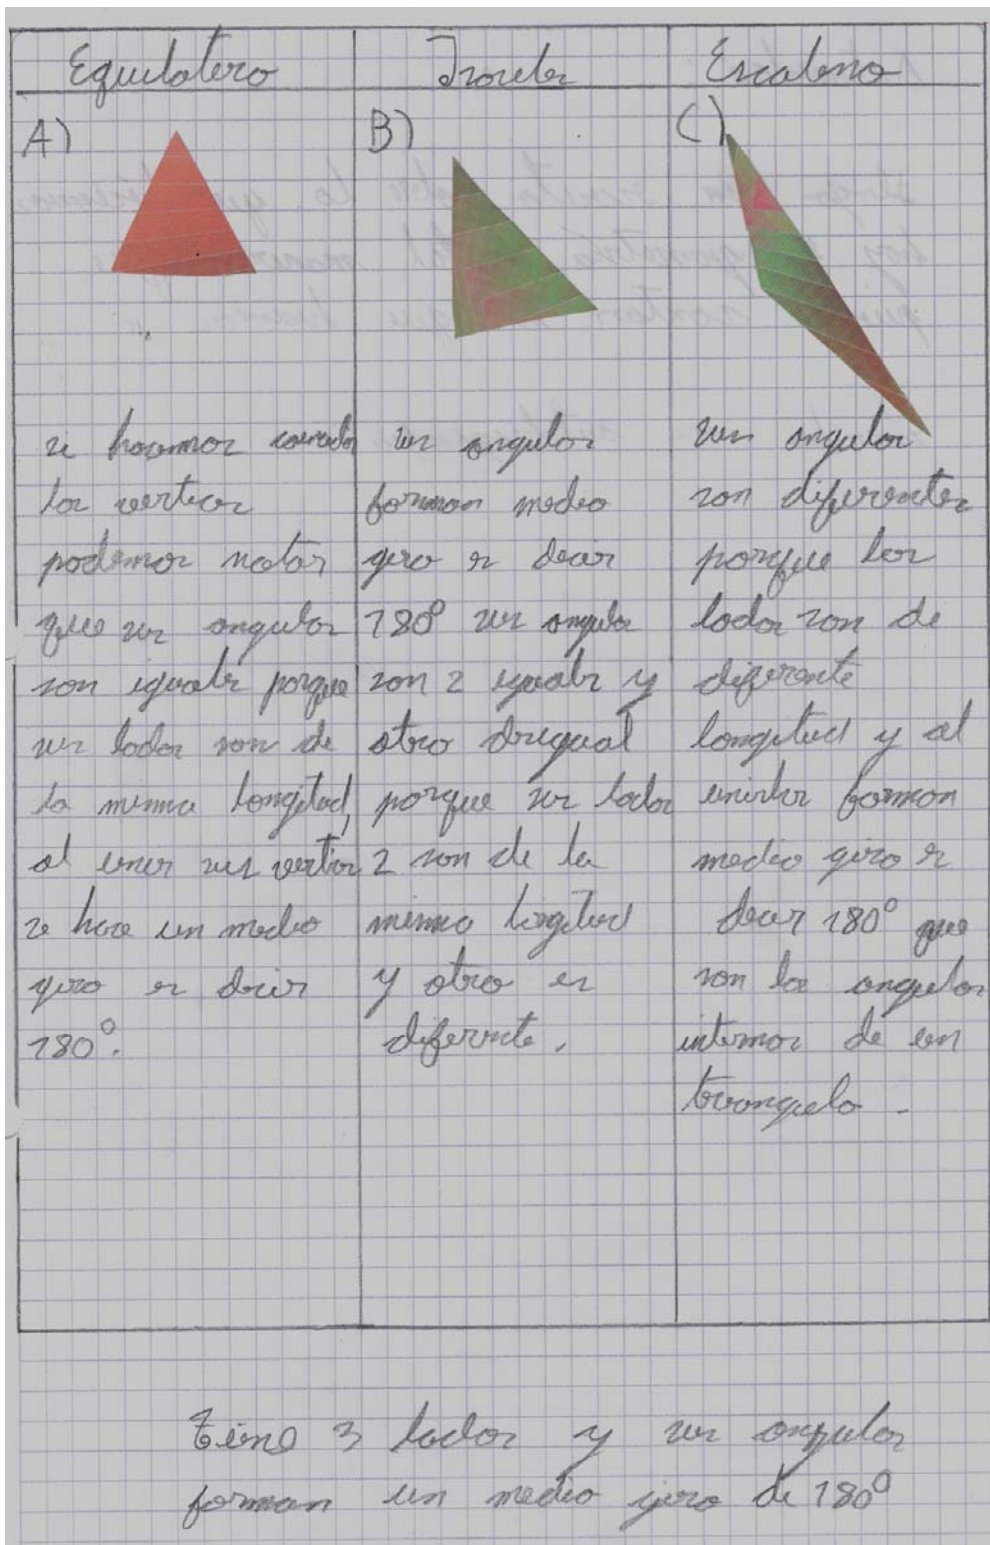 Equilatero
Isoceles
Escaleno
A)
si hacemos coincidir
los vertices
podemos notar
que sus angulos
son iguales porque
sus lados son de
la misma longitud,
al unir sus vertices
se hace un medio
giro es decir
180°.
B)
sus angulos
forman medio
giro es decir
180° sus angulos
son 2 iguales y
otro desigual
porque sus lados
2 son de la
misma longitud
y otro es
diferente.
C)
sus angulos
son diferentes
porque los
lados son de
diferente
longitud y al
unirlos forman
medio giro es
decir 180° que
son los angulos
internos de un
triangulo.
tiene 3 lados y sus angulos
forman un medio giro de 180°